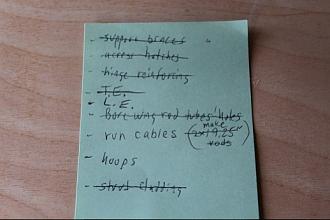 - support braces
- access hatches
- hinge reinforcing
- T.E.
- L.E.
- Bore wing rod tubes' holes
- run cables (make 2x 19.25" rods)
- hoops
- strut cladding